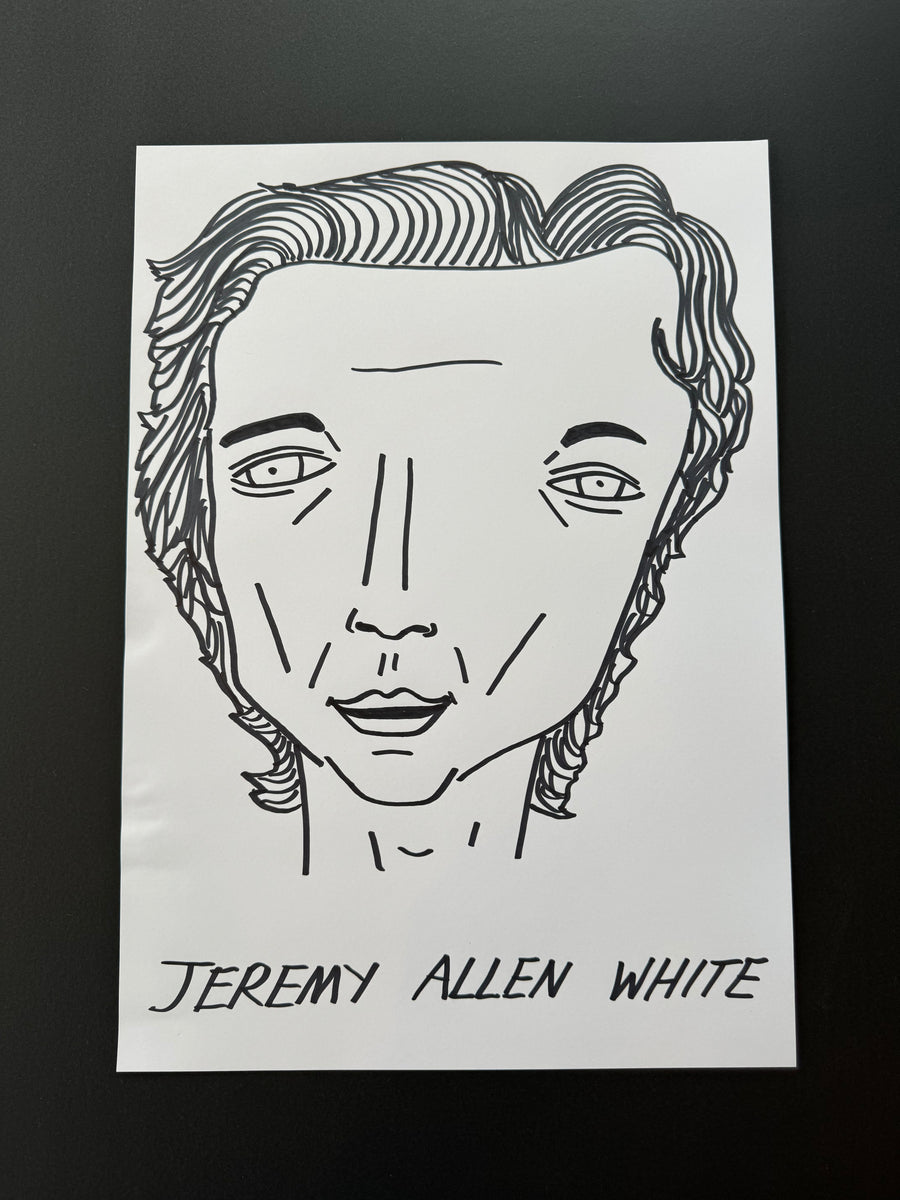 JEREMY ALLEN WHITE